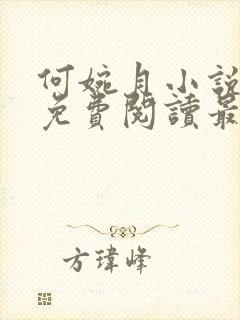 何婉月小說
免費閱讀最
方瑋峰